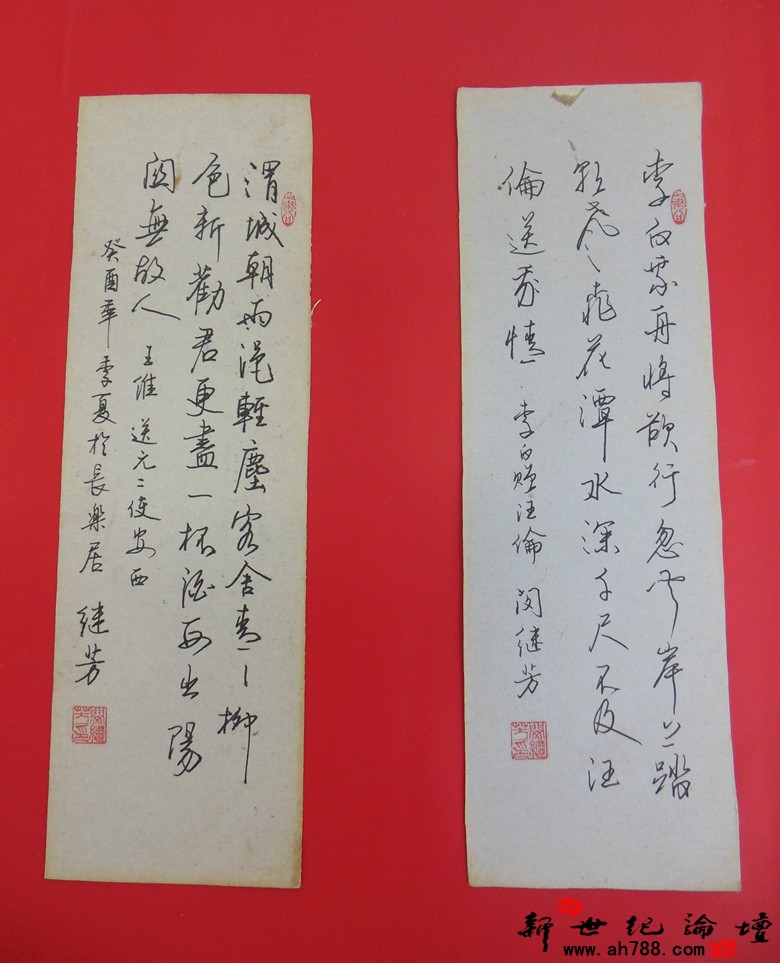 李白乘舟將欲行忽闻岸上踏
歌声桃花潭水深千尺不及汪
倫送我情 李白贈汪倫 闵继芳
渭城朝雨浥輕塵客舍青〻柳
色新勸君更盡一杯酒西出陽
関無故人 王維 送元二使安西
癸酉年季夏於長樂居 继芳
新世纪論壇
www.ah788.com